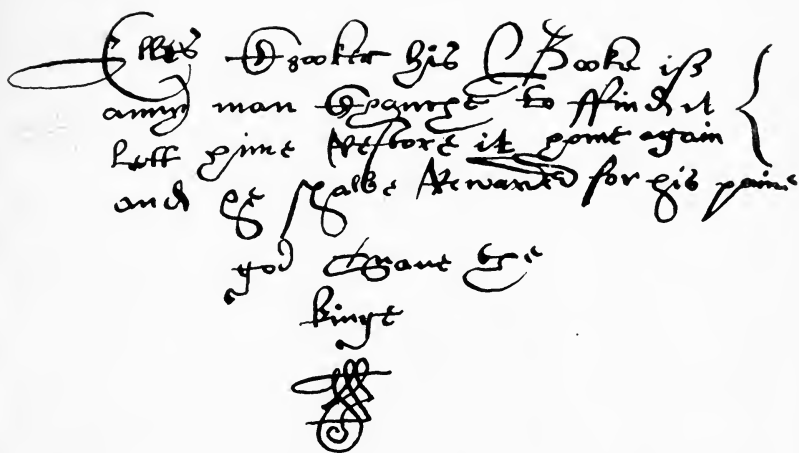 Elles Crooker his Booke iff
anny man Chanche to ffind it
lett hime Restore it hime again
and he shalbe Rewarded for his paine
god save the
kinge